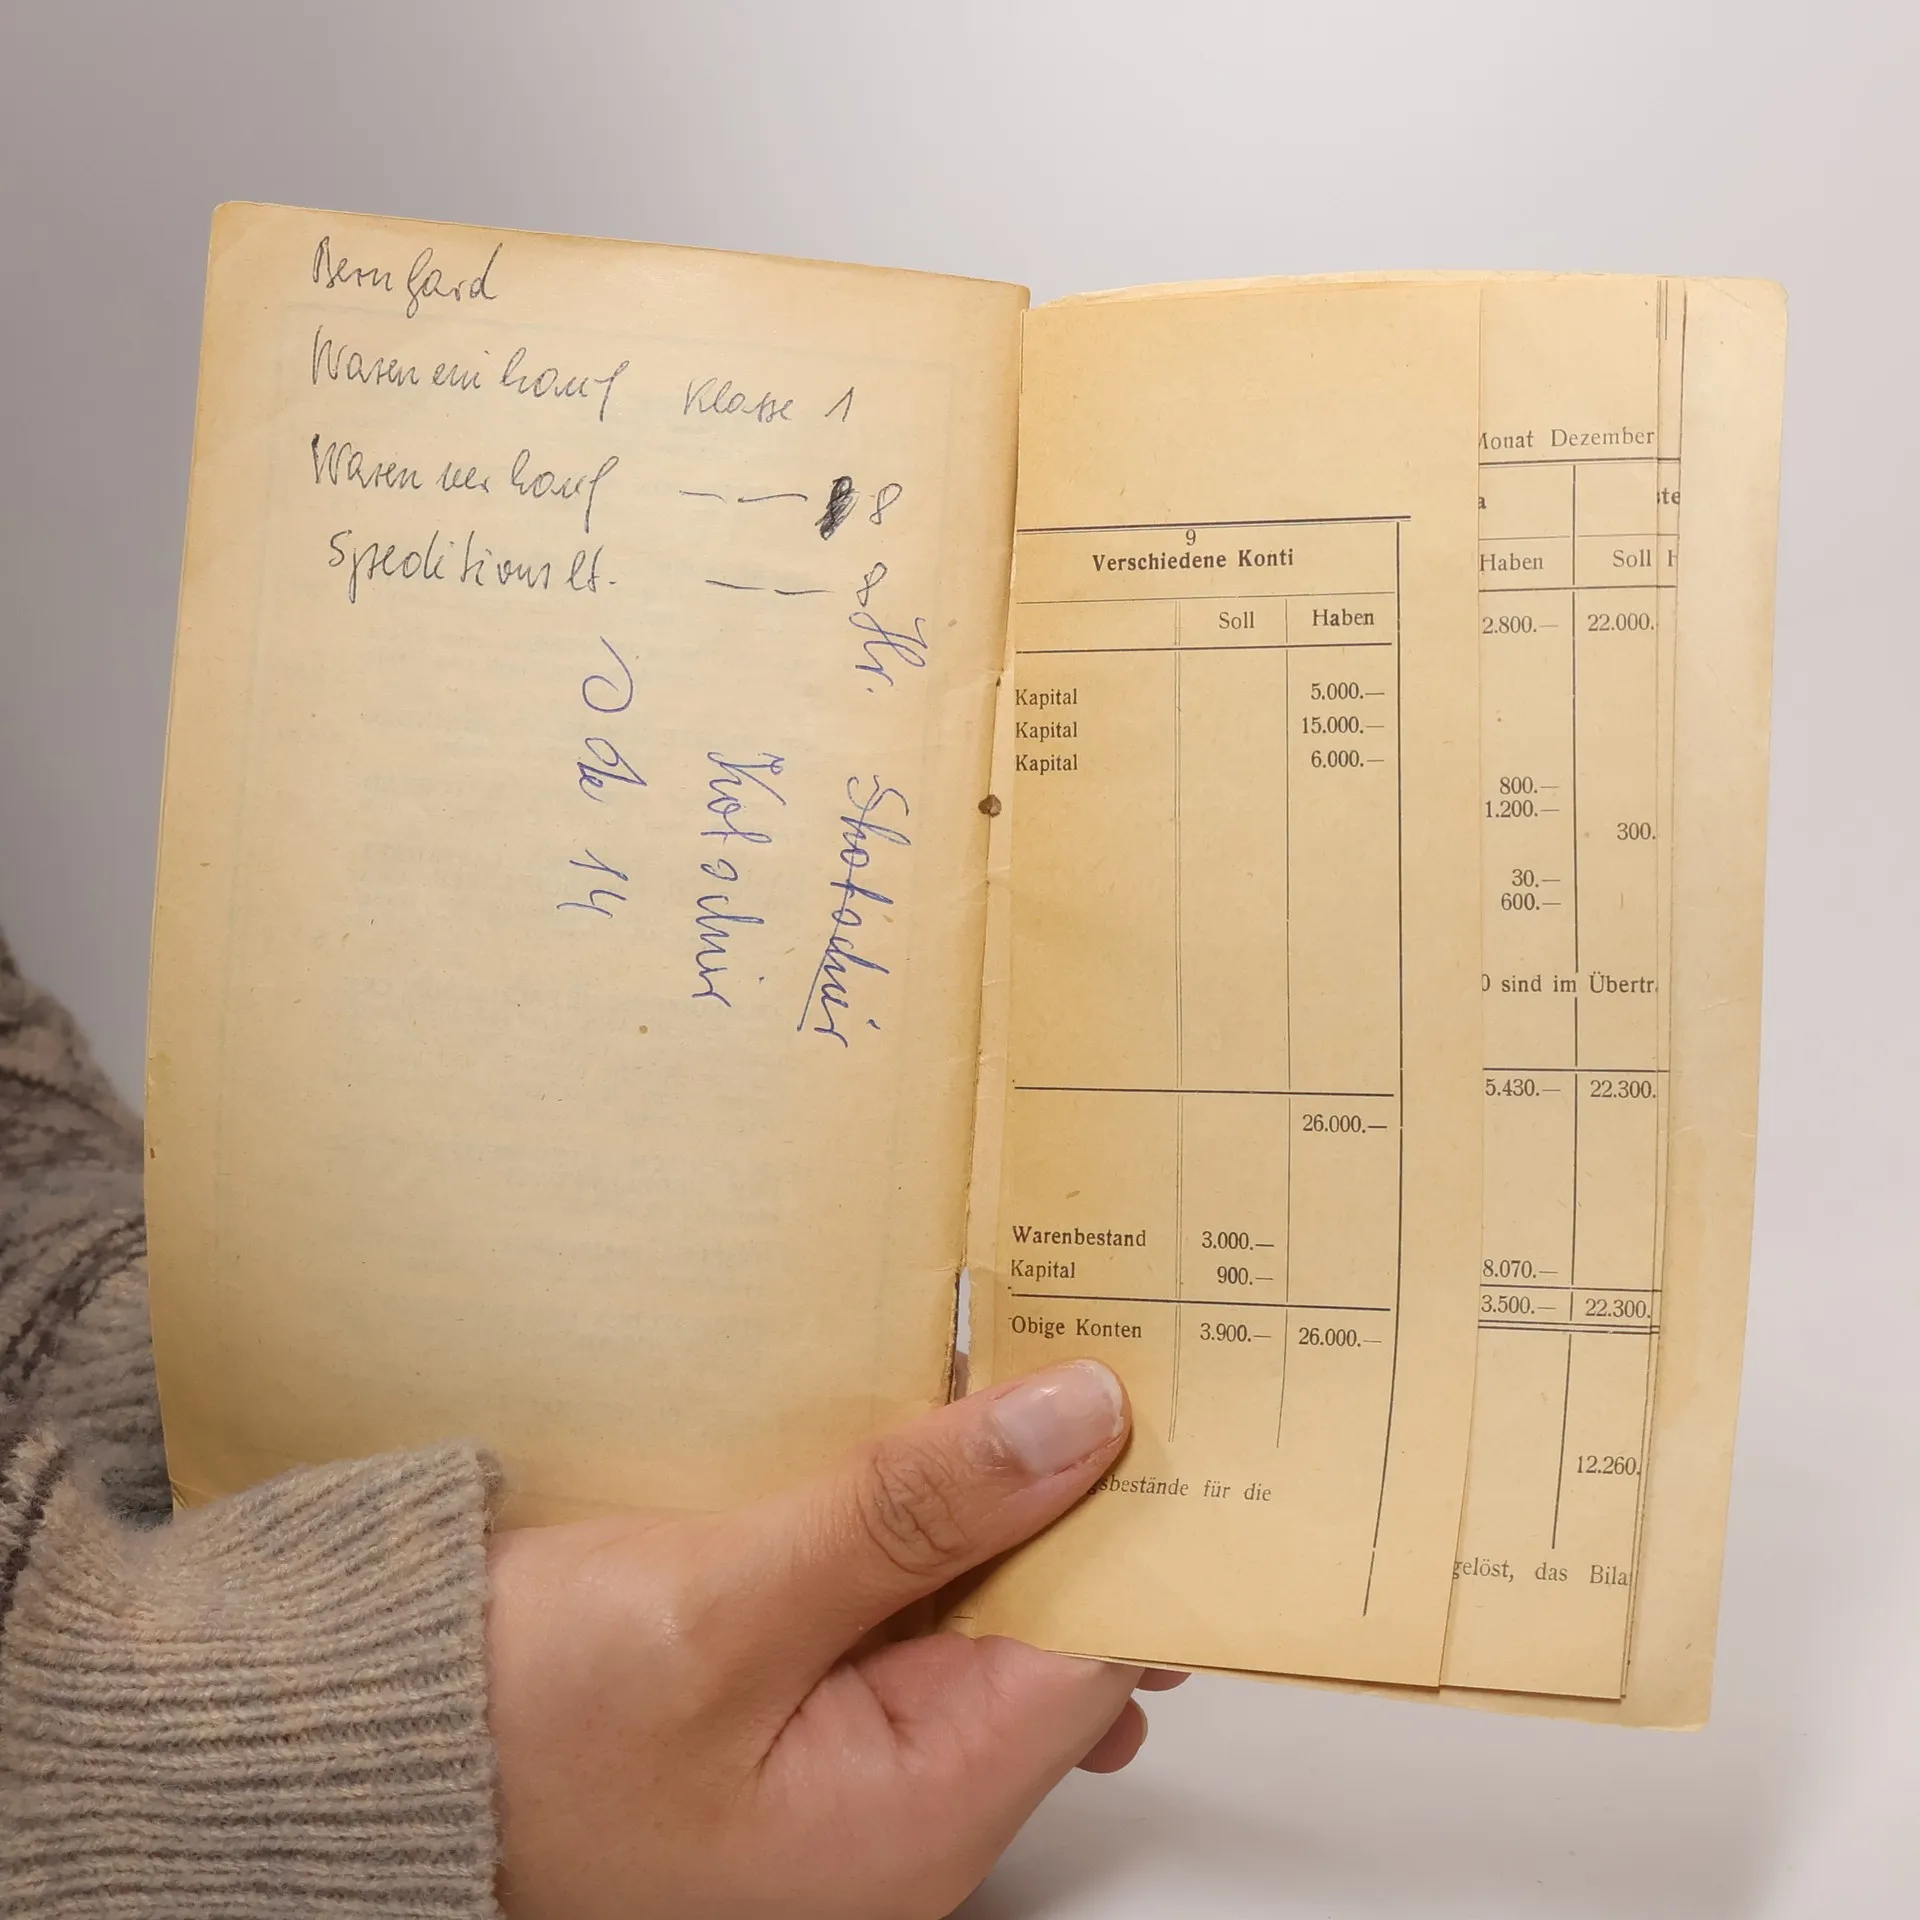 Bernhard
Wareneinkauf Klasse 1
Warenverkauf — — 8
— — 8
Hr.
Kotschir
14
9
Verschiedene Konti
Soll Haben
Kapital 5.000.—
Kapital 15.000.—
Kapital 6.000.—
26.000.—
Warenbestand 3.000.—
Kapital 900.—
Obige Konten 3.900.— 26.000.—
sbestände für die
Monat Dezember
Haben Soll
2.800.— 22.000.
800.—
1.200.—
300.
30.—
600.—
0 sind im Übertr
5.430.— 22.300.
8.070.—
3.500.— 22.300.
12.260.
gelöst, das Bila